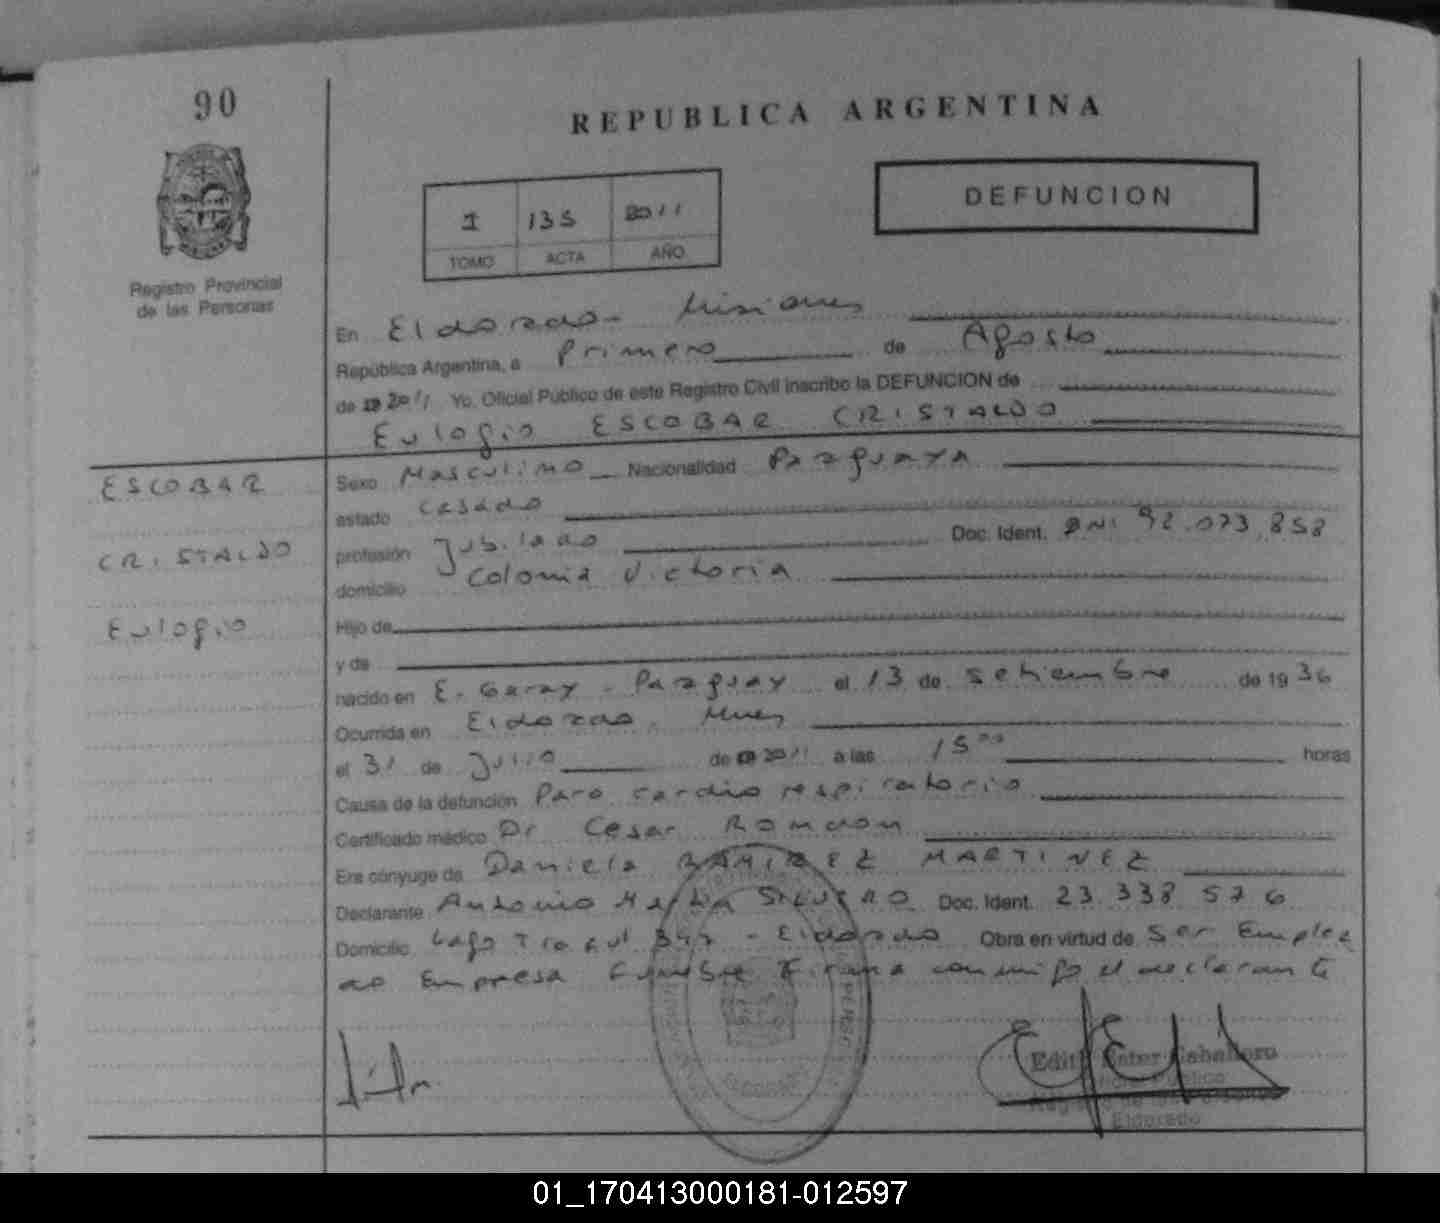 90
REPUBLICA ARGENTINA
DEFUNCION
1 135 2011
TOMO ACTA AÑO
Registro Provincial
de las Personas
En Eldorado - Misiones
República Argentina, a Primero de Agosto
de 2011 Yo, Oficial Público de este Registro Civil inscribo la DEFUNCION de
Eulogio ESCOBAR CRISTALDO
ESCOBAR
CRISTALDO
Eulogio
Sexo Masculino Nacionalidad Paraguaya
estado casado
profesión Jubilado Doc. Ident. DNI 92.073.858
domicilio Colonia Victoria
Hijo de
y de
nacido en E. Garay - Paraguay el 13 de Setiembre de 1936
Ocurrida en Eldorado, Mnes
el 31 de Julio de 2011 a las 15 00 horas
Causa de la defunción Paro cardio respiratorio
Certificado médico Dr Cesar
Era cónyuge de Daniela RAMIREZ MARTINEZ
Declarante Antonio SILVERO Doc. Ident. 23.338.576
Domicilio Lago - Eldorado Obra en virtud de Ser Emplea
do Empresa Funebre Firma conmigo el declarante
Edith Ester Caballero
Oficial Público
Eldorado
01_170413000181-012597